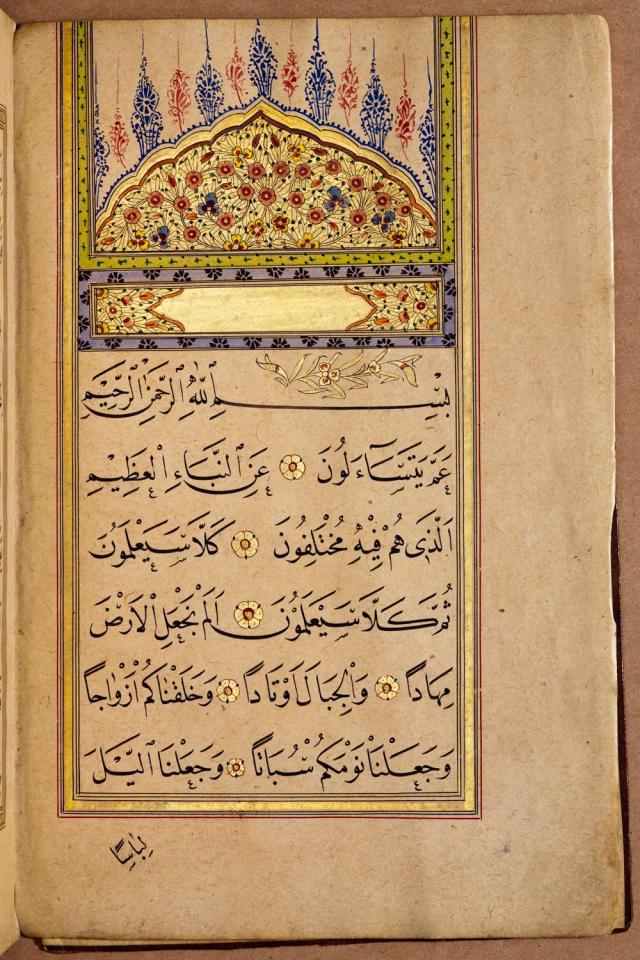 بِسْمِ ٱللّٰهِ ٱلرَّحْمٰنِ ٱلرَّحِيْمِ
عَمَّ يَتَسَآءَلُونَ عَنِ ٱلنَّبَاءِ ٱلْعَظِيْمِ
اَلَّذٖى هُمْ فِيْهِ مُخْتَلِفُونَ كَلَّا سَيَعْلَمُونَ
ثُمَّ كَلَّا سَيَعْلَمُوْنَ اَلَمْ نَجْعَلِ الْاَرْضَ
مِهَادًا وَالْجِبَالَ اَوْتَادًا وَخَلَقْنَاكُمْ اَزْوَاجًا
وَجَعَلْنَا نَوْمَكُمْ سُبَاتًا وَجَعَلْنَا الَّيْلَ
لِبَاسًا